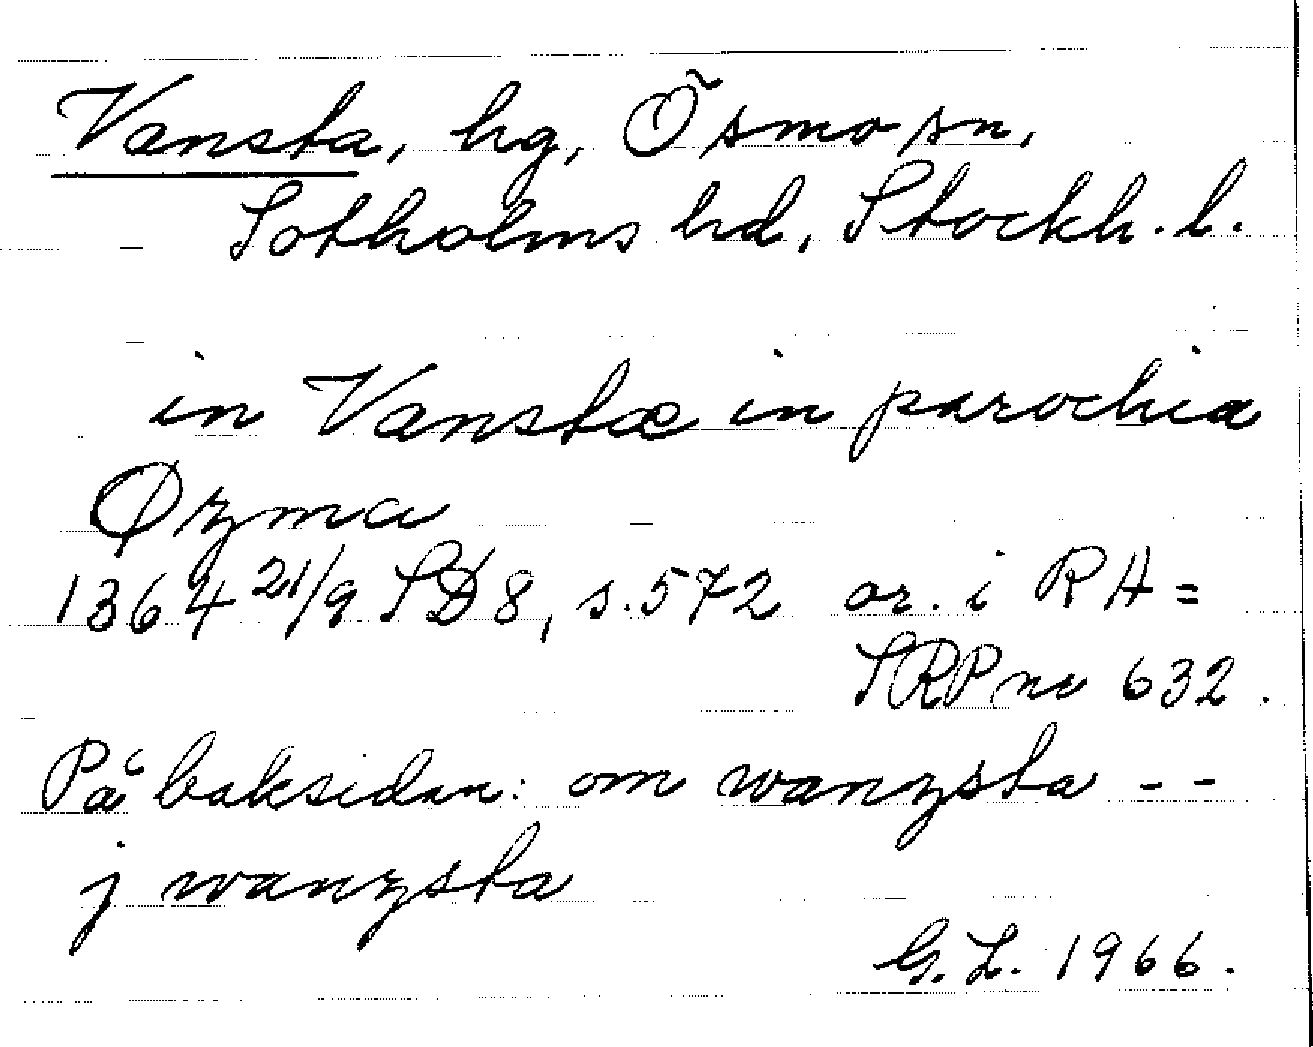 Vansta, hg, Ösmo sn,
Sotholms hd, Stockh. l.
in Vanstæ in parochia
Øzma
1364 21/9 SD 8, s. 572 or. i RA =
SRP nr 632.
På baksidan: om wanzsta - -
j wanzsta
G. L. 1966.